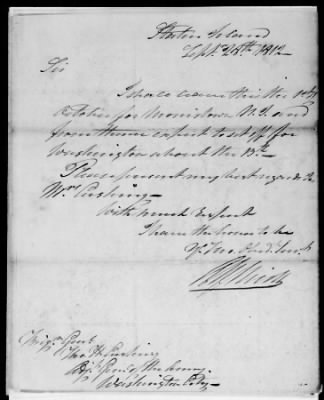 Staten Island
Sept. 28th 1812
Sir
I shall leave this the 1st of
October for Morristown N.J. and
from thence expect to set off for
Washington about the 13th
Please present my best regards to
Mrs Cushing.
With much Respect
I have the honor to be
Yr. Mo. Obd. Sevt.
Brigr. Genl.
Thos. H. Cushing
Adjt. Genl. of the Army.
Washington City